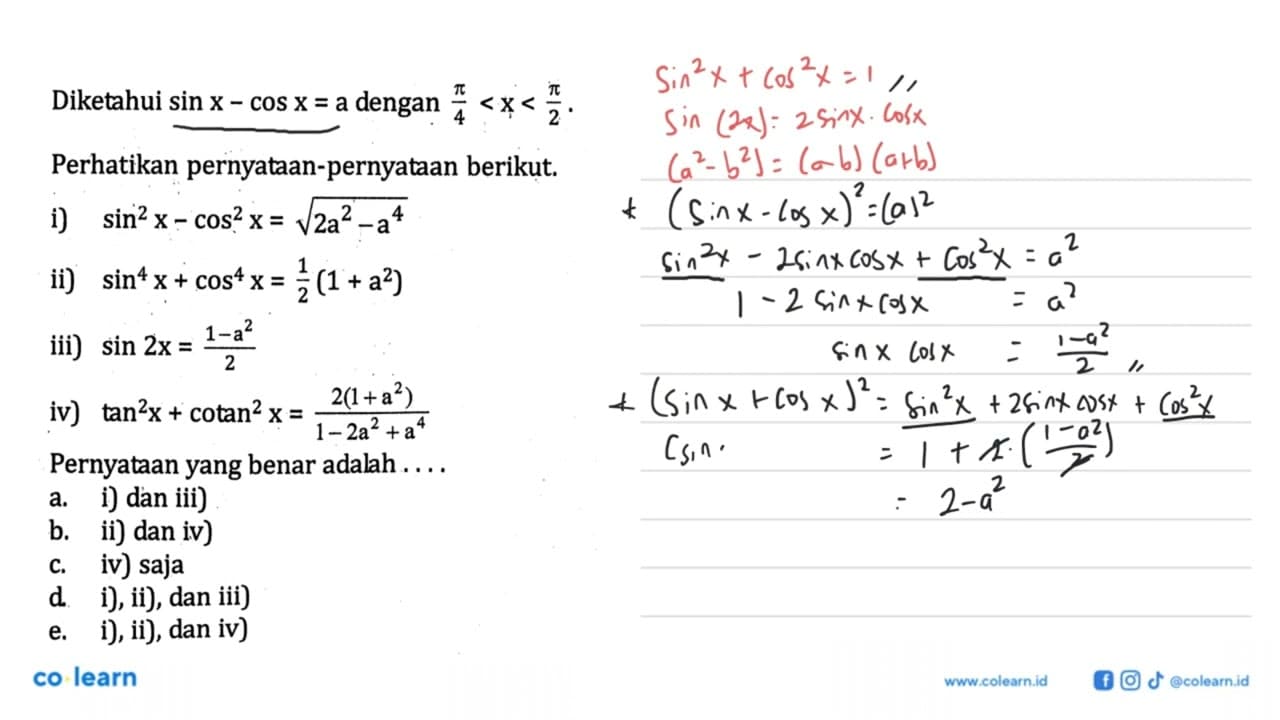 Diketahui sin x – cos x = a dengan π/4 < x < π/2 .
Perhatikan pernyataan-pernyataan berikut.
i) sin² x – cos² x = √(2a² – a⁴)
ii) sin⁴ x + cos⁴ x = 1/2 (1 + a²)
iii) sin 2x = (1–a²)/2
iv) tan²x + cotan² x = 2(1+a²)/(1–2a²+a⁴)
Pernyataan yang benar adalah . . . .
a. i) dan iii)
b. ii) dan iv)
c. iv) saja
d. i), ii), dan iii)
e. i), ii), dan iv)
sin² x + cos² x = 1 //
sin (2x) = 2 sin x . cos x
(a² - b²) = (a-b) (a+b)
* (sin x - cos x)² = (a)²
sin²x - 2 sin x cos x + cos²x = a²
1 - 2 sin x cos x = a²
sin x cos x = (1-a²)/2 //
* (sin x + cos x)² = sin²x + 2 sin x cos x + cos²x
(sin. = 1 + 2. ((1-a²)/2)
= 2-a²
co learn
www.colearn.id
@colearn.id